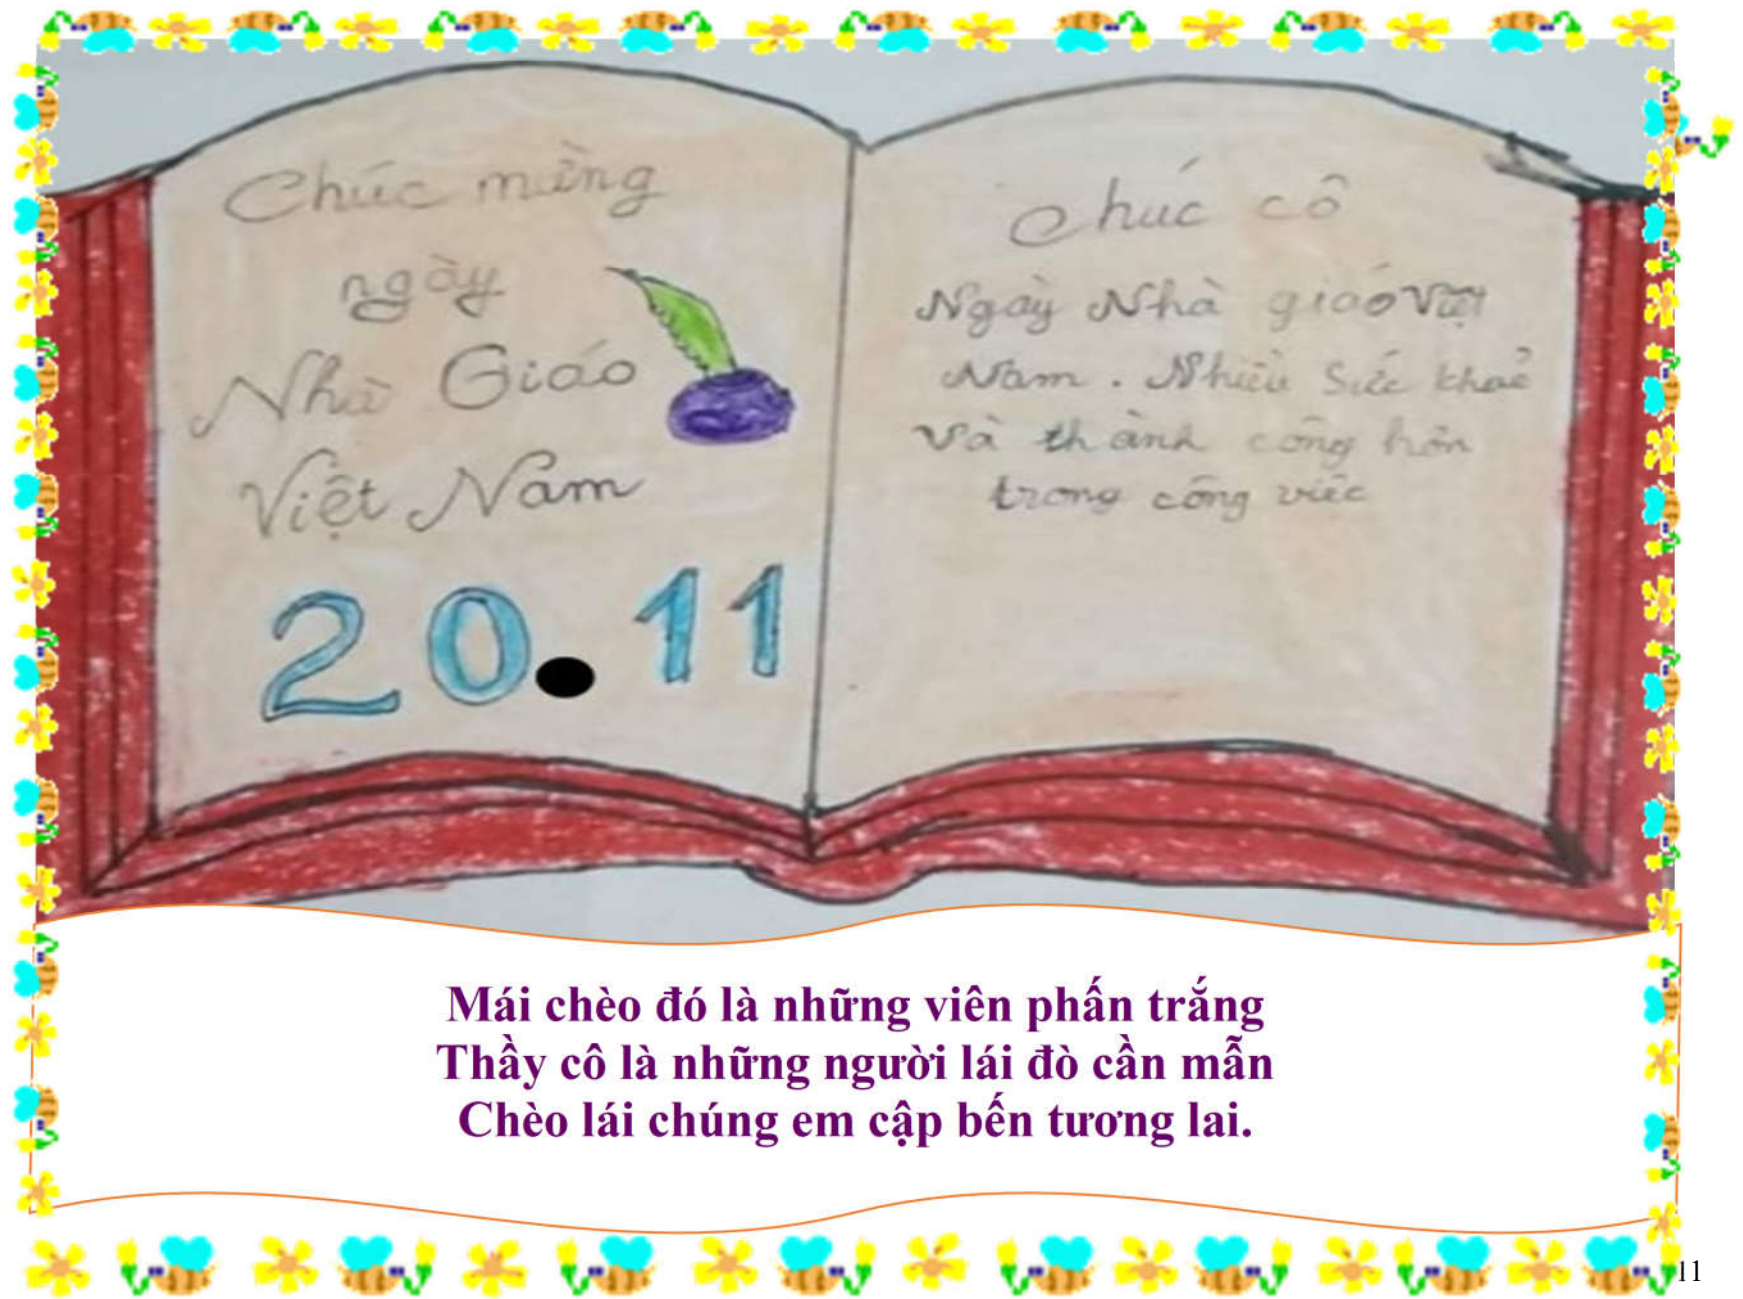 Chúc mừng
ngày
Nhà Giáo
Việt Nam
20.11
Chúc cô
Ngày Nhà giáo Việt
Nam. Nhiều sức khoẻ
Và thành công hơn
trong công việc
Mái chèo đó là những viên phấn trắng
Thầy cô là những người lái đò cần mẫn
Chèo lái chúng em cập bến tương lai.
11